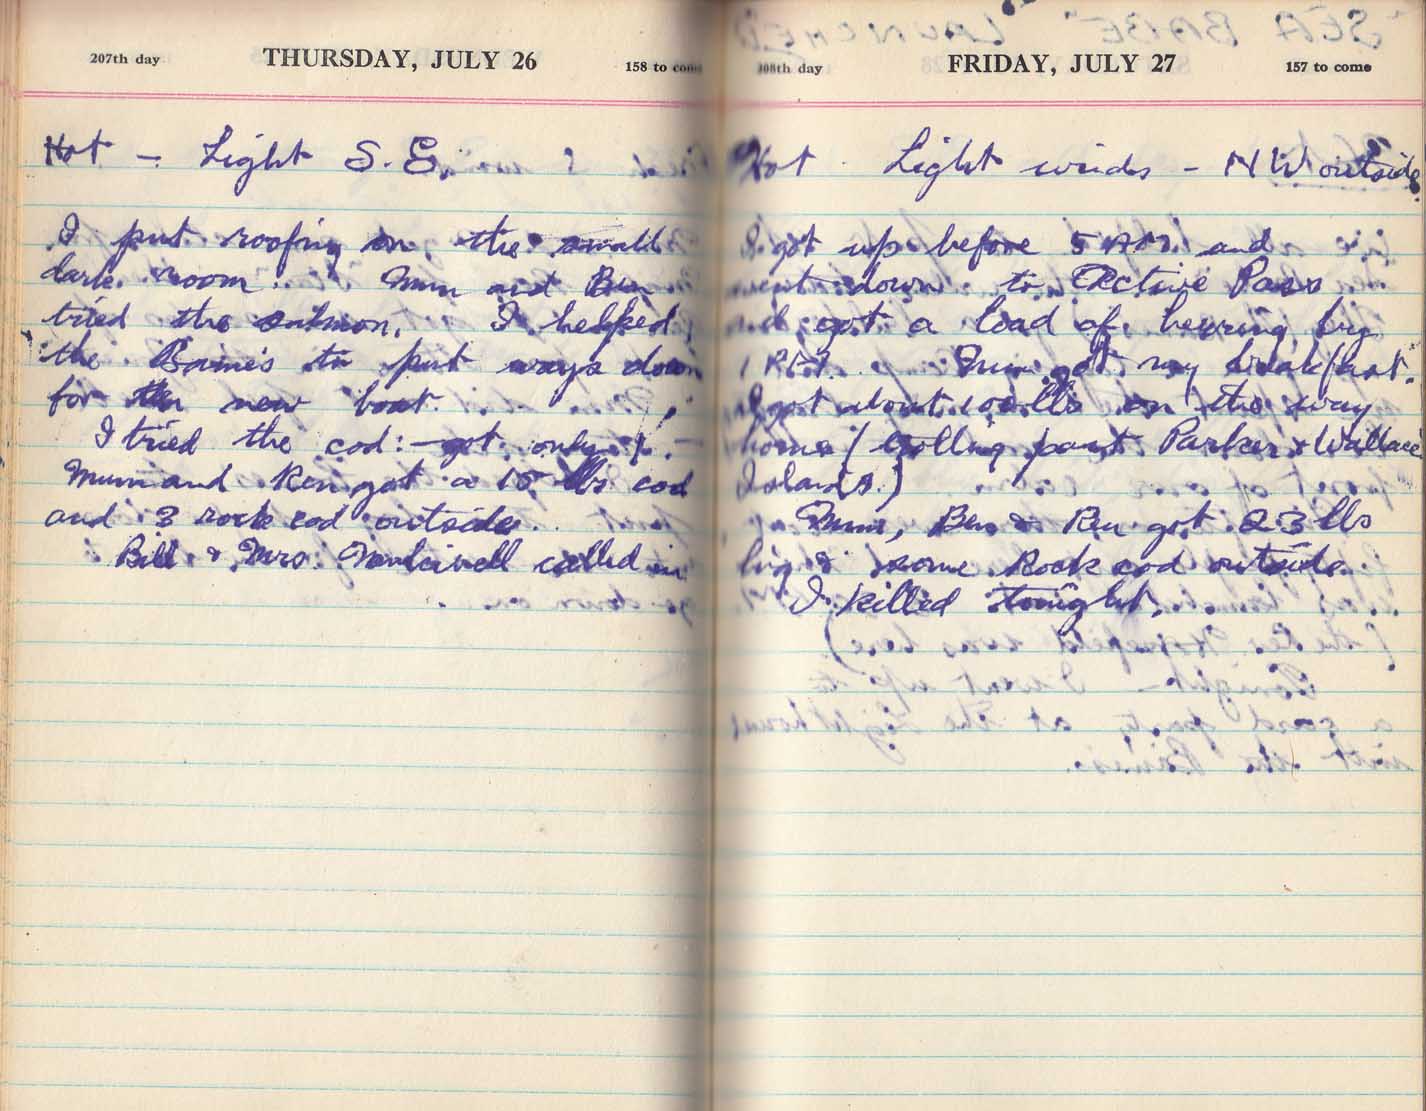 207th day THURSDAY, JULY 26 158 to come
Hot - Light S.E.
I put roofing on the small
dark room. Mum and Ben
tried the salmon. I helped
the Baines to put ways down
for the new boat.
I tried the cod: - got only 1. -
Mum and Ken got a 15 lbs cod
and 3 rock cod outside.
Bill & Mrs. called in
208th day FRIDAY, JULY 27 157 to come
Hot Light winds - NW outside
I got up before 5 AM. and
went down to Active Pass
and got a load of herring by
1 PM. Mum got my breakfast.
I got about lbs on the way
home (trolling past Parker & Wallace
Islands.)
Mum, Ben & Ken got 23 lbs
ling & some Rock cod outside.
I killed tonight.
"SEA BABE" LAUNCHED
(the Rev. was here)
Tonight - I went up to
a card party at the Lighthouse
with the Baines.